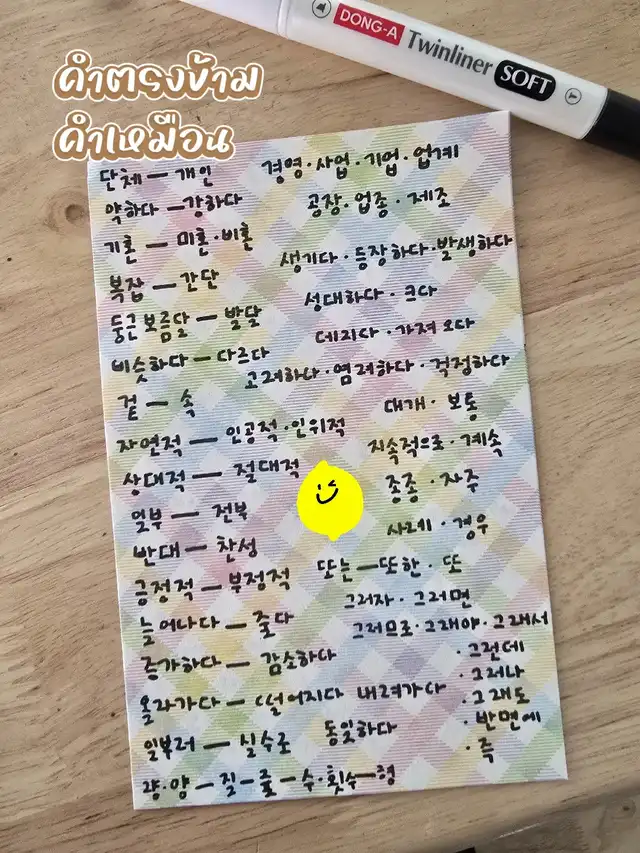 DONG-A Twinliner SOFT
คำตรงข้าม
คำเหมือน
단체 — 개인
경영 · 사업 · 기업 · 업계
약하다 — 강하다
공장 · 업종 · 제조
기혼 — 미혼 · 비혼
생기다 · 등장하다 · 발생하다
복잡 — 간단
성대하다 · 크다
둥근 보름달 — 발달
데리다 · 가져 오다
비슷하다 — 다르다
고려하다 · 염려하다 · 걱정하다
겉 — 속
대개 · 보통
자연적 — 인공적 · 인위적
지속적으로 · 계속
상대적 — 절대적
종종 · 자주
일부 — 전부
사례 · 경우
반대 — 찬성
또는 — 또한 · 또
긍정적 — 부정적
그러자 · 그러면
늘어나다 — 줄다
그러므로 · 그래야 · 그래서
증가하다 — 감소하다
· 그런데
· 그러나
올라가다 — 떨어지다 내려가다
· 그래도
· 반면에
일부러 — 실수로
동일하다
· 즉
량 · 양 — 질 — 율 — 수 · 횟수 — 형